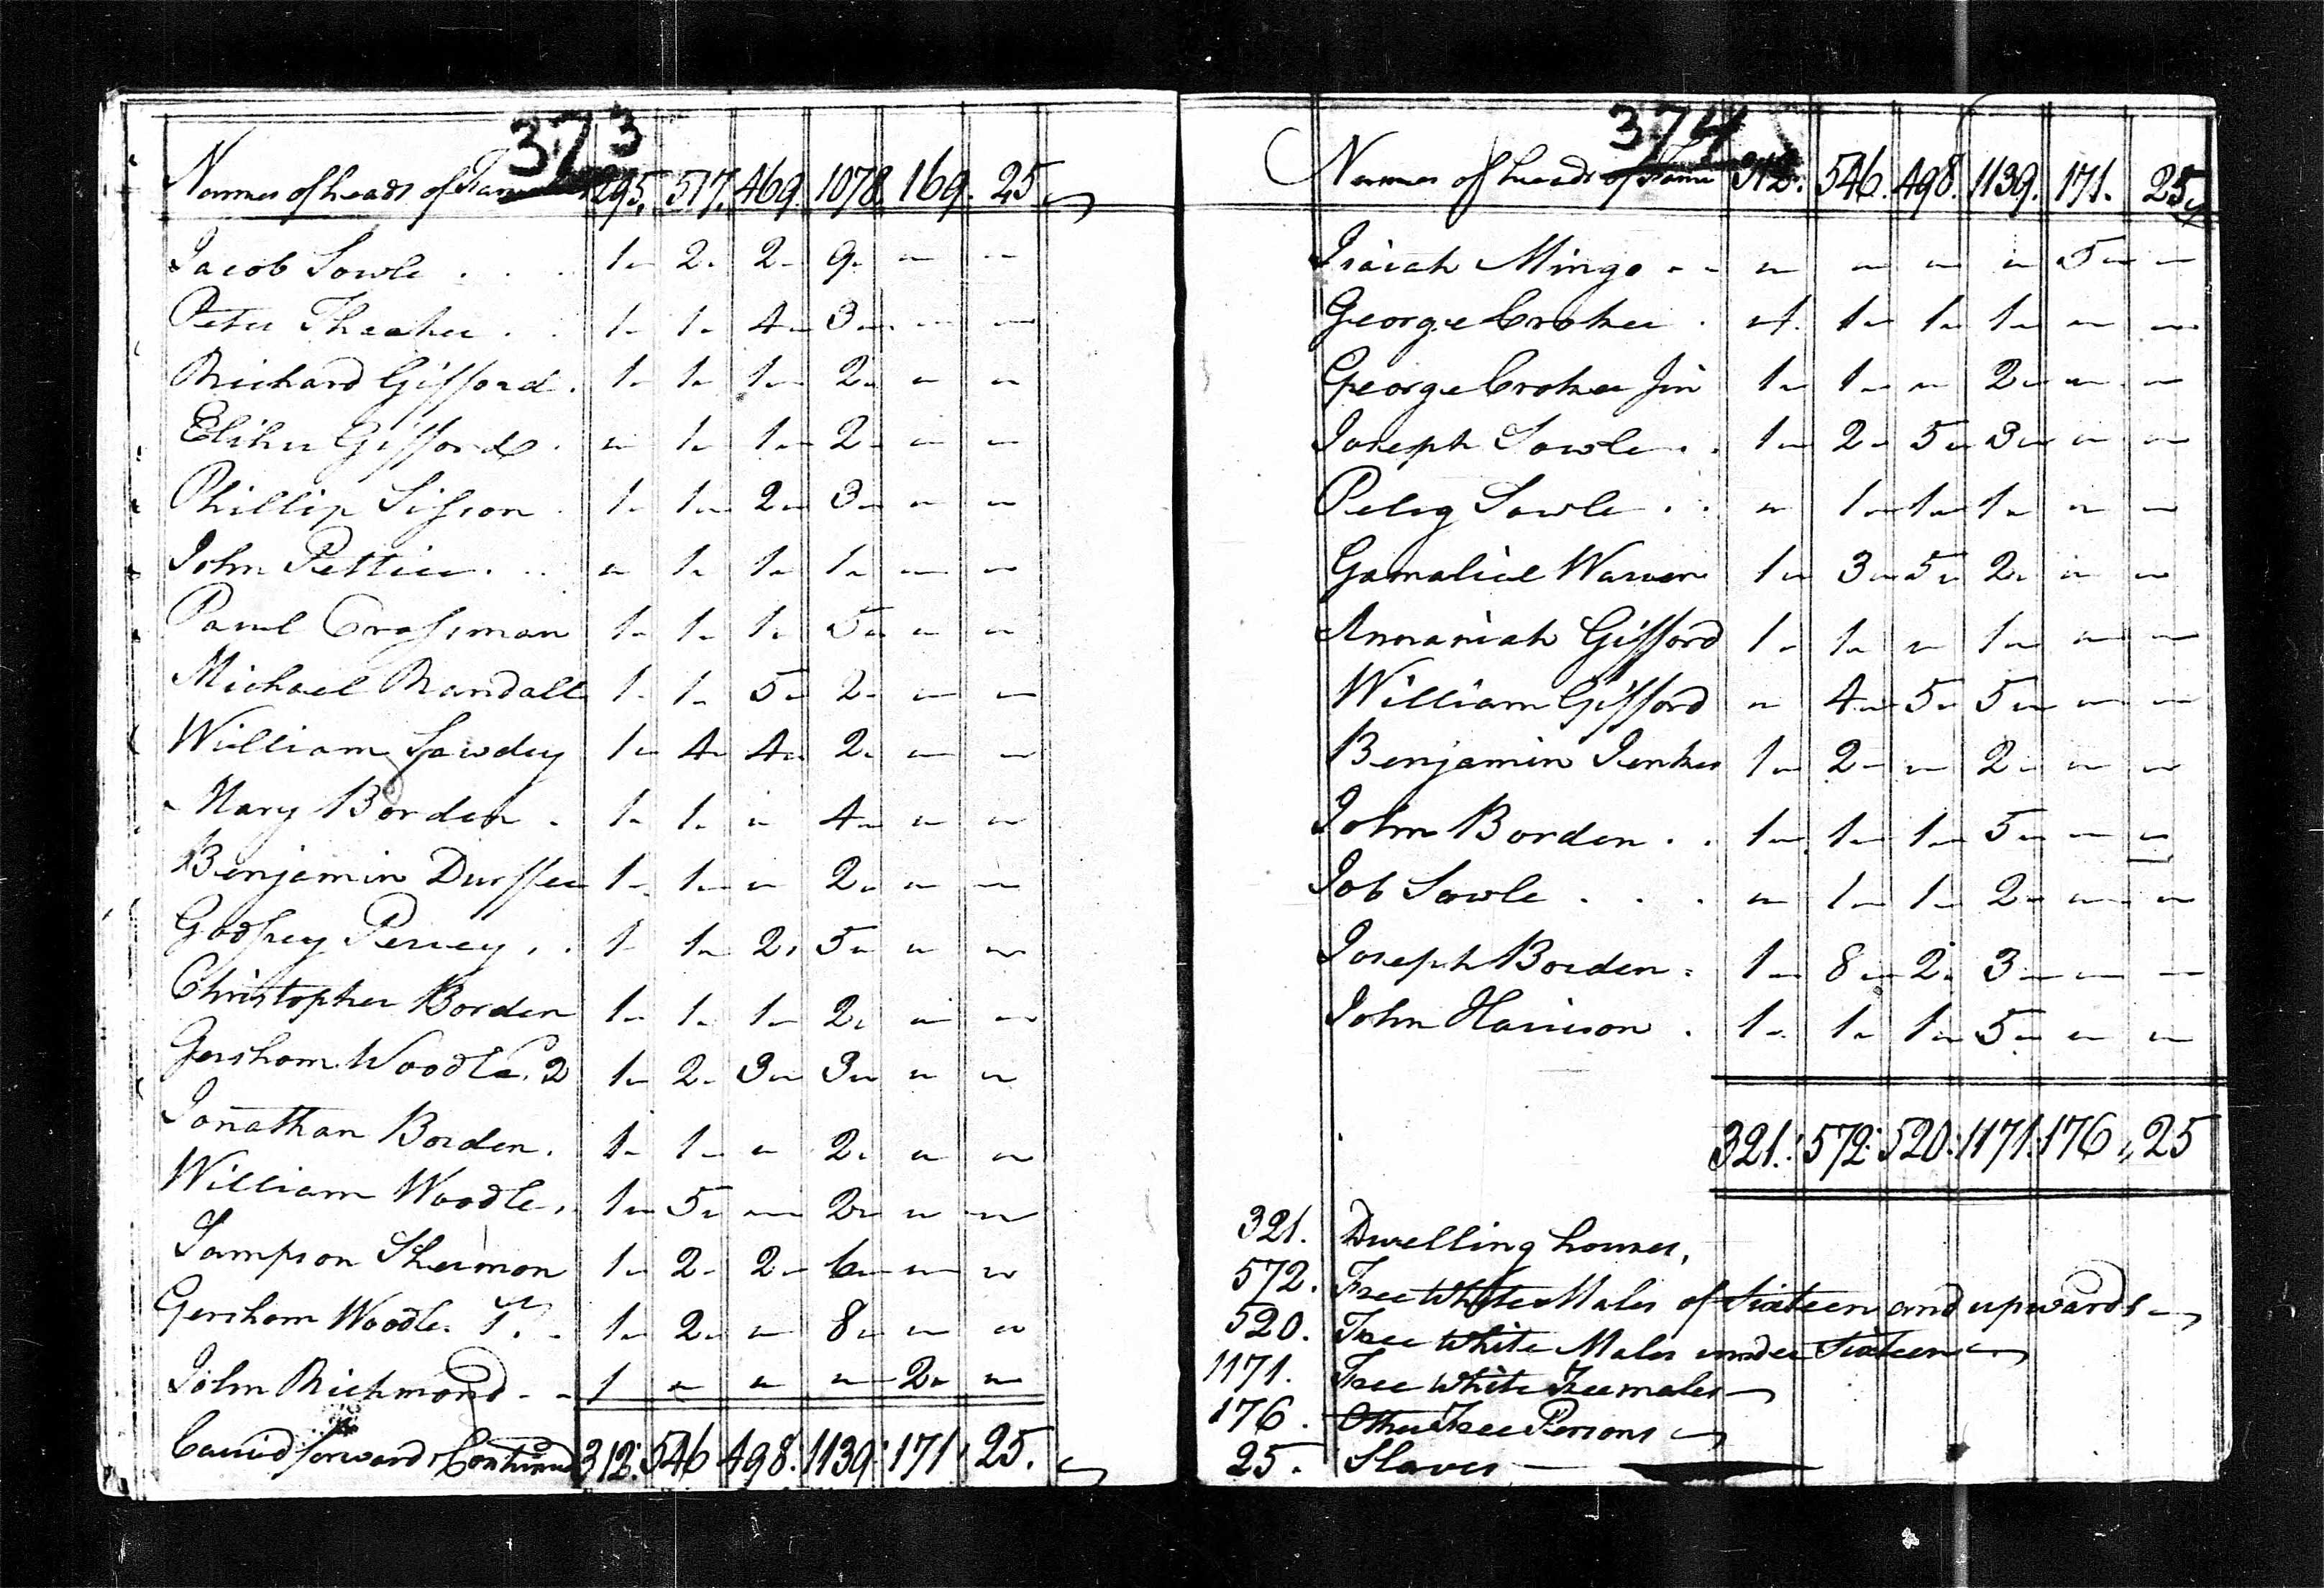 373
Names of heads of Fam 295. 517. 469. 1078. 169. 25
Jacob Sowle . . . 1 2 2 9 " "
Peter Thacher . . 1 1 4 3 " "
Richard Gifford . 1 1 1 2 " "
Elihu Gifford . " 1 1 2 " "
Phillip Sisson . 1 1 2 3 " "
John Pettice . . " 1 1 1 " "
Paul Crossman 1 1 1 5 " "
Michael Randall 1 1 5 2 " "
William Sawdey 1 4 4 2 " "
Mary Borden . 1 1 " 4 " "
Benjamin Durffee 1 1 " 2 " "
Godfrey Pervey . . 1 1 2 5 " "
Christopher Borden 1 1 1 2 " "
Gersham Woodle. 2 1 2 3 3 " "
Jonathan Borden . 1 1 " 2 " "
William Woodle . 1 5 " 2 " "
Sampson Shermon 1 2 2 6 " "
Gersham Woodle. 1 2 " 8 " "
John Richmond - - 1 " " " 2 "
Carried forward & Continued 312: 546 498: 1139: 171 25.
374
Names of heads of Fami 312. 546. 498. 1139. 171. 25
Isaiah Mingo - - " " " " 5 "
George Croker . 1 1 1 1 " "
George Croker Jun 1 1 " 2 " "
Joseph Sowle . . 1 2 5 3 " "
Peleg Sowle . . " 1 1 1 " "
Gamaliel Warren 1 3 5 2 " "
Annaniah Gifford 1 1 " 1 " "
William Gifford " 4 5 5 " "
Benjamin Jenkes 1 2 " 2 " "
John Borden . . 1 1 1 5 " "
Job Sowle . . . " 1 1 2 " "
Joseph Borden . 1 8 2 3 " "
John Harrison . 1 1 1 5 " "
321: 572: 520: 1171: 176 25
321. Dwelling houses,
572. Free White Males of Sixteen and upwards
520. Free White Males under Sixteen
1171. Free White Feemales
176. Other Free Persons
25. Slaves